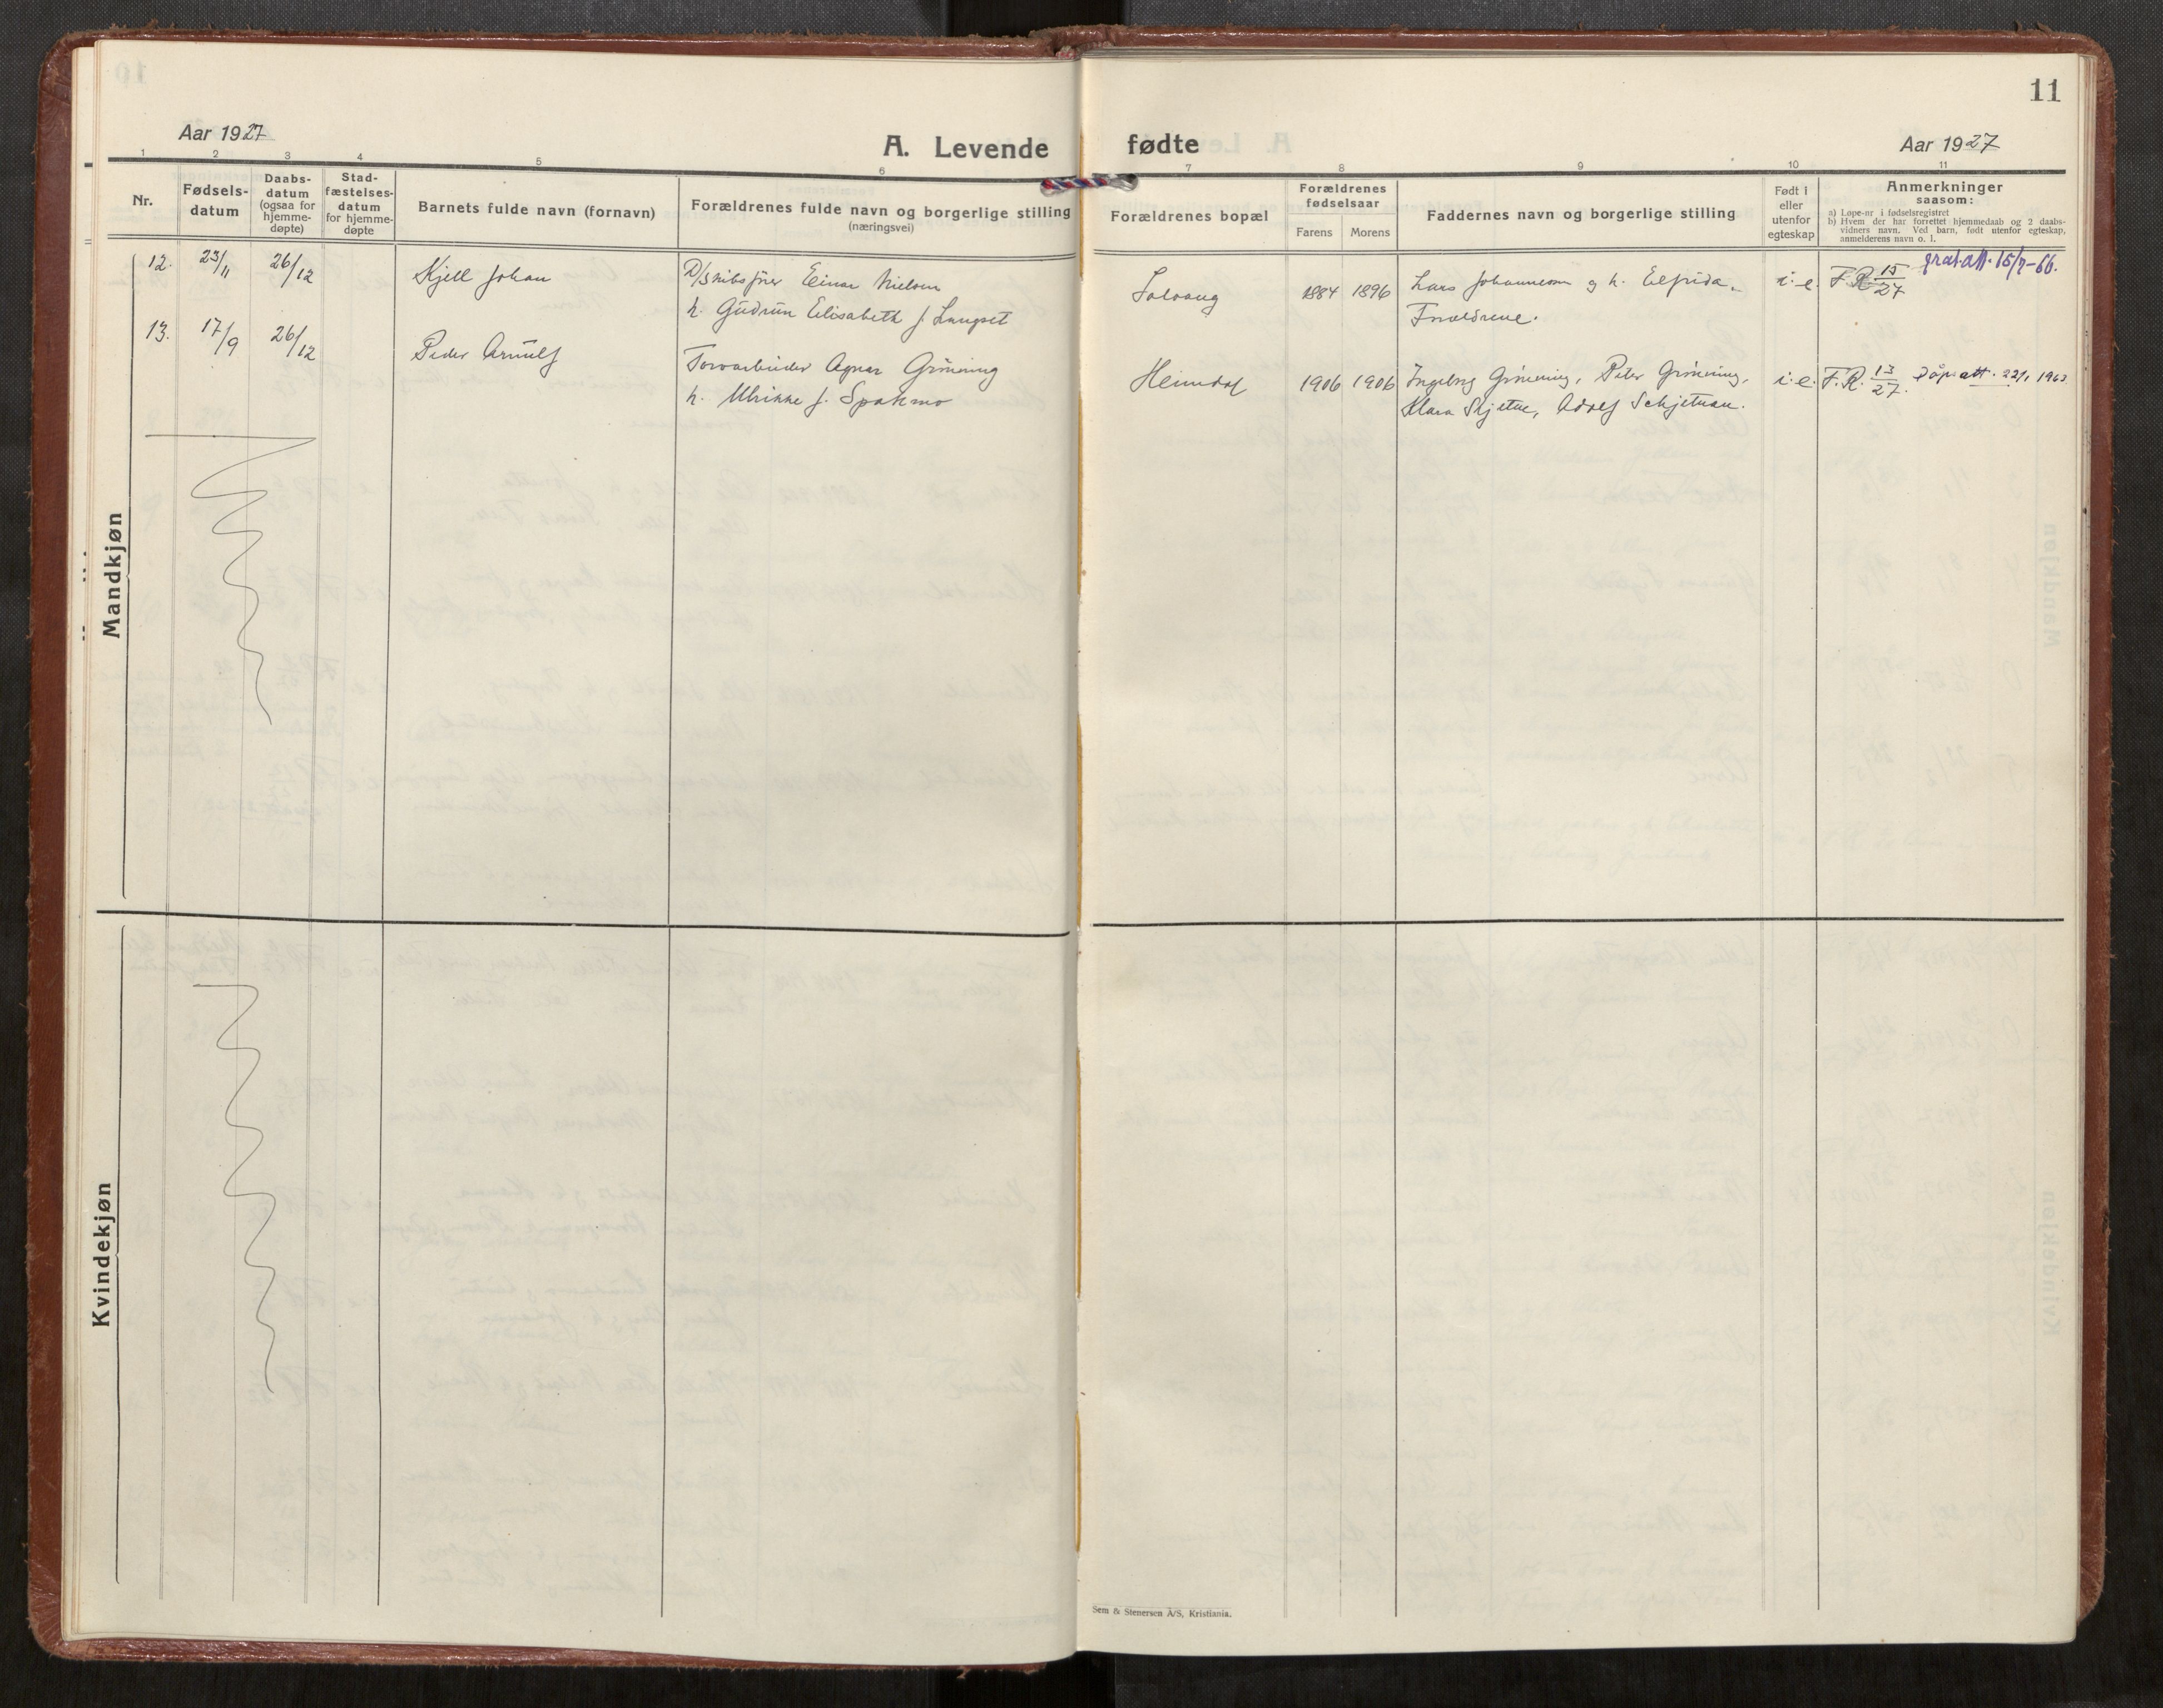 11
Aar 1927
A. Levende fødte
Aar 1927
1 2 3 4 5 6 7 8 9 10 11
Nr.
Fødsels-
datum
Daabs-
datum
(ogsaa for
hjemme-
døpte)
Stad-
fæstelses-
datum
for hjemme-
døpte
Barnets fulde navn (fornavn)
Forældrenes fulde navn og borgerlige stilling
(næringsvei)
Forældrenes bopæl
Forældrenes
fødselsaar
Farens
Morens
Faddernes navn og borgerlige stilling
Født i
eller
utenfor
egteskap
Anmerkninger
saasom:
a) Løpe-nr i fødselsregistret
b) Hvem der har forrettet hjemmedaab og 2 daabs-
vidners navn. Ved barn, født utenfor egteskap,
anmelderens navn o. l.
Mandkjøn
12. 23/11 26/12 Kjell Johan
D/skibsfører Einar Nielsen
h. Gudrun Elisabeth f. Langset
Solvang 1884 1896
Lars Johannesen og h. Elfrida.
Forældrene.
i. e. F.R. 15/27 grat. att. 15/7-66.
13. 17/9 26/12 Peder Arnulf
Torvarbeider Agnar Grønning
h. Ulrikke f. Spakmo
Heimdal 1906 1906
Ingebrg Grønning, Peter Grønning,
Klara Skjetne, Adolf Schjetnan.
i. e. F.R. 13/27. Dåp. att. 22/1 1963
Kvindekjøn
Sem & Stenersen A/S, Kristiania.